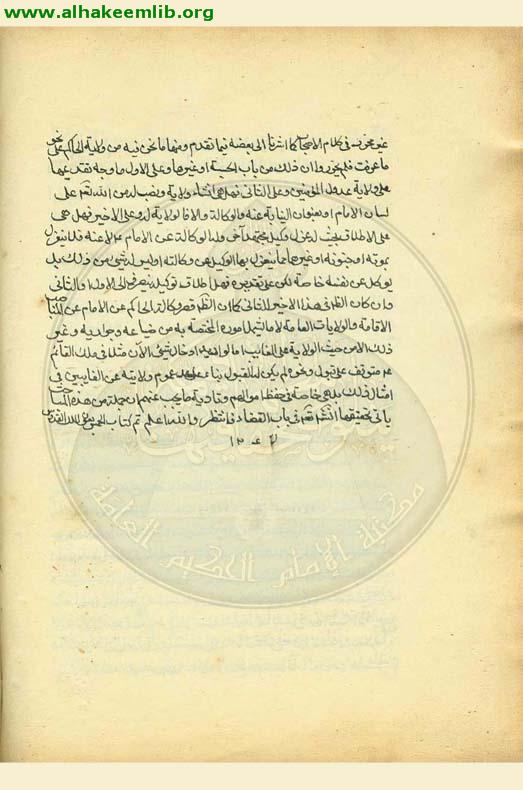 www.alhakeemlib.org
غير محررة في كلام الاصحاب كما اشرنا الى بعضه فيما تقدم ومنها ما نحن فيه من ولاية الحاكم على نحو
ما عرفت فلم يحرروا ان ذلك من باب الحسبة او غيرها وعلى الاول ما وجه تقديمها
على ولاية عدول المؤمنين وعلى الثاني فهل هي انشاء ولاية ونصب له من الله تعالى على
لسان الامام او بعنوان النيابة عنه والوكالة والا فالولاية له وعلى الاخير فهل هي
على الاطلاق بحيث له عزل وكيل مجتهد آخر ولو بالوكالة عن الامام عنه فلا ينعزل
بموته او جنونه او غيرهما مما ينعزل بها الوكيل من وكالته او ليس له شيء من ذلك بل
يوكل عن نفسه خاصة لكن على تقديره فهل اطلاق توكيله ينصرف الى الاول او الثاني
وان كان الظاهر في هذا الاخير الثاني كما ان الظاهر قصر وكالة الحاكم عن الامام عن المناصب
العامة والولايات العامة لا ما يشمل اموره المختصة به من ضياعه وجواريه وغير
ذلك الا من حيث الولاية على الغايب اما لو اريد ادخال شيء الآن مثلا في ملك القائم
عم متوقف على قبول ونحوه لم يكن له القبول بناء على عدم عموم ولايته عن الغائبين في
امثال ذلك بل هي خاصة في حفظ اموالهم وتادية ما يجب عنهم الى جملة من هذه المباحث
ياتي تحقيقها انشاء الله تعالى في باب القضاء فانتظر والله اعلم تم كتاب
مكتبة الإمام الحكيم العامة